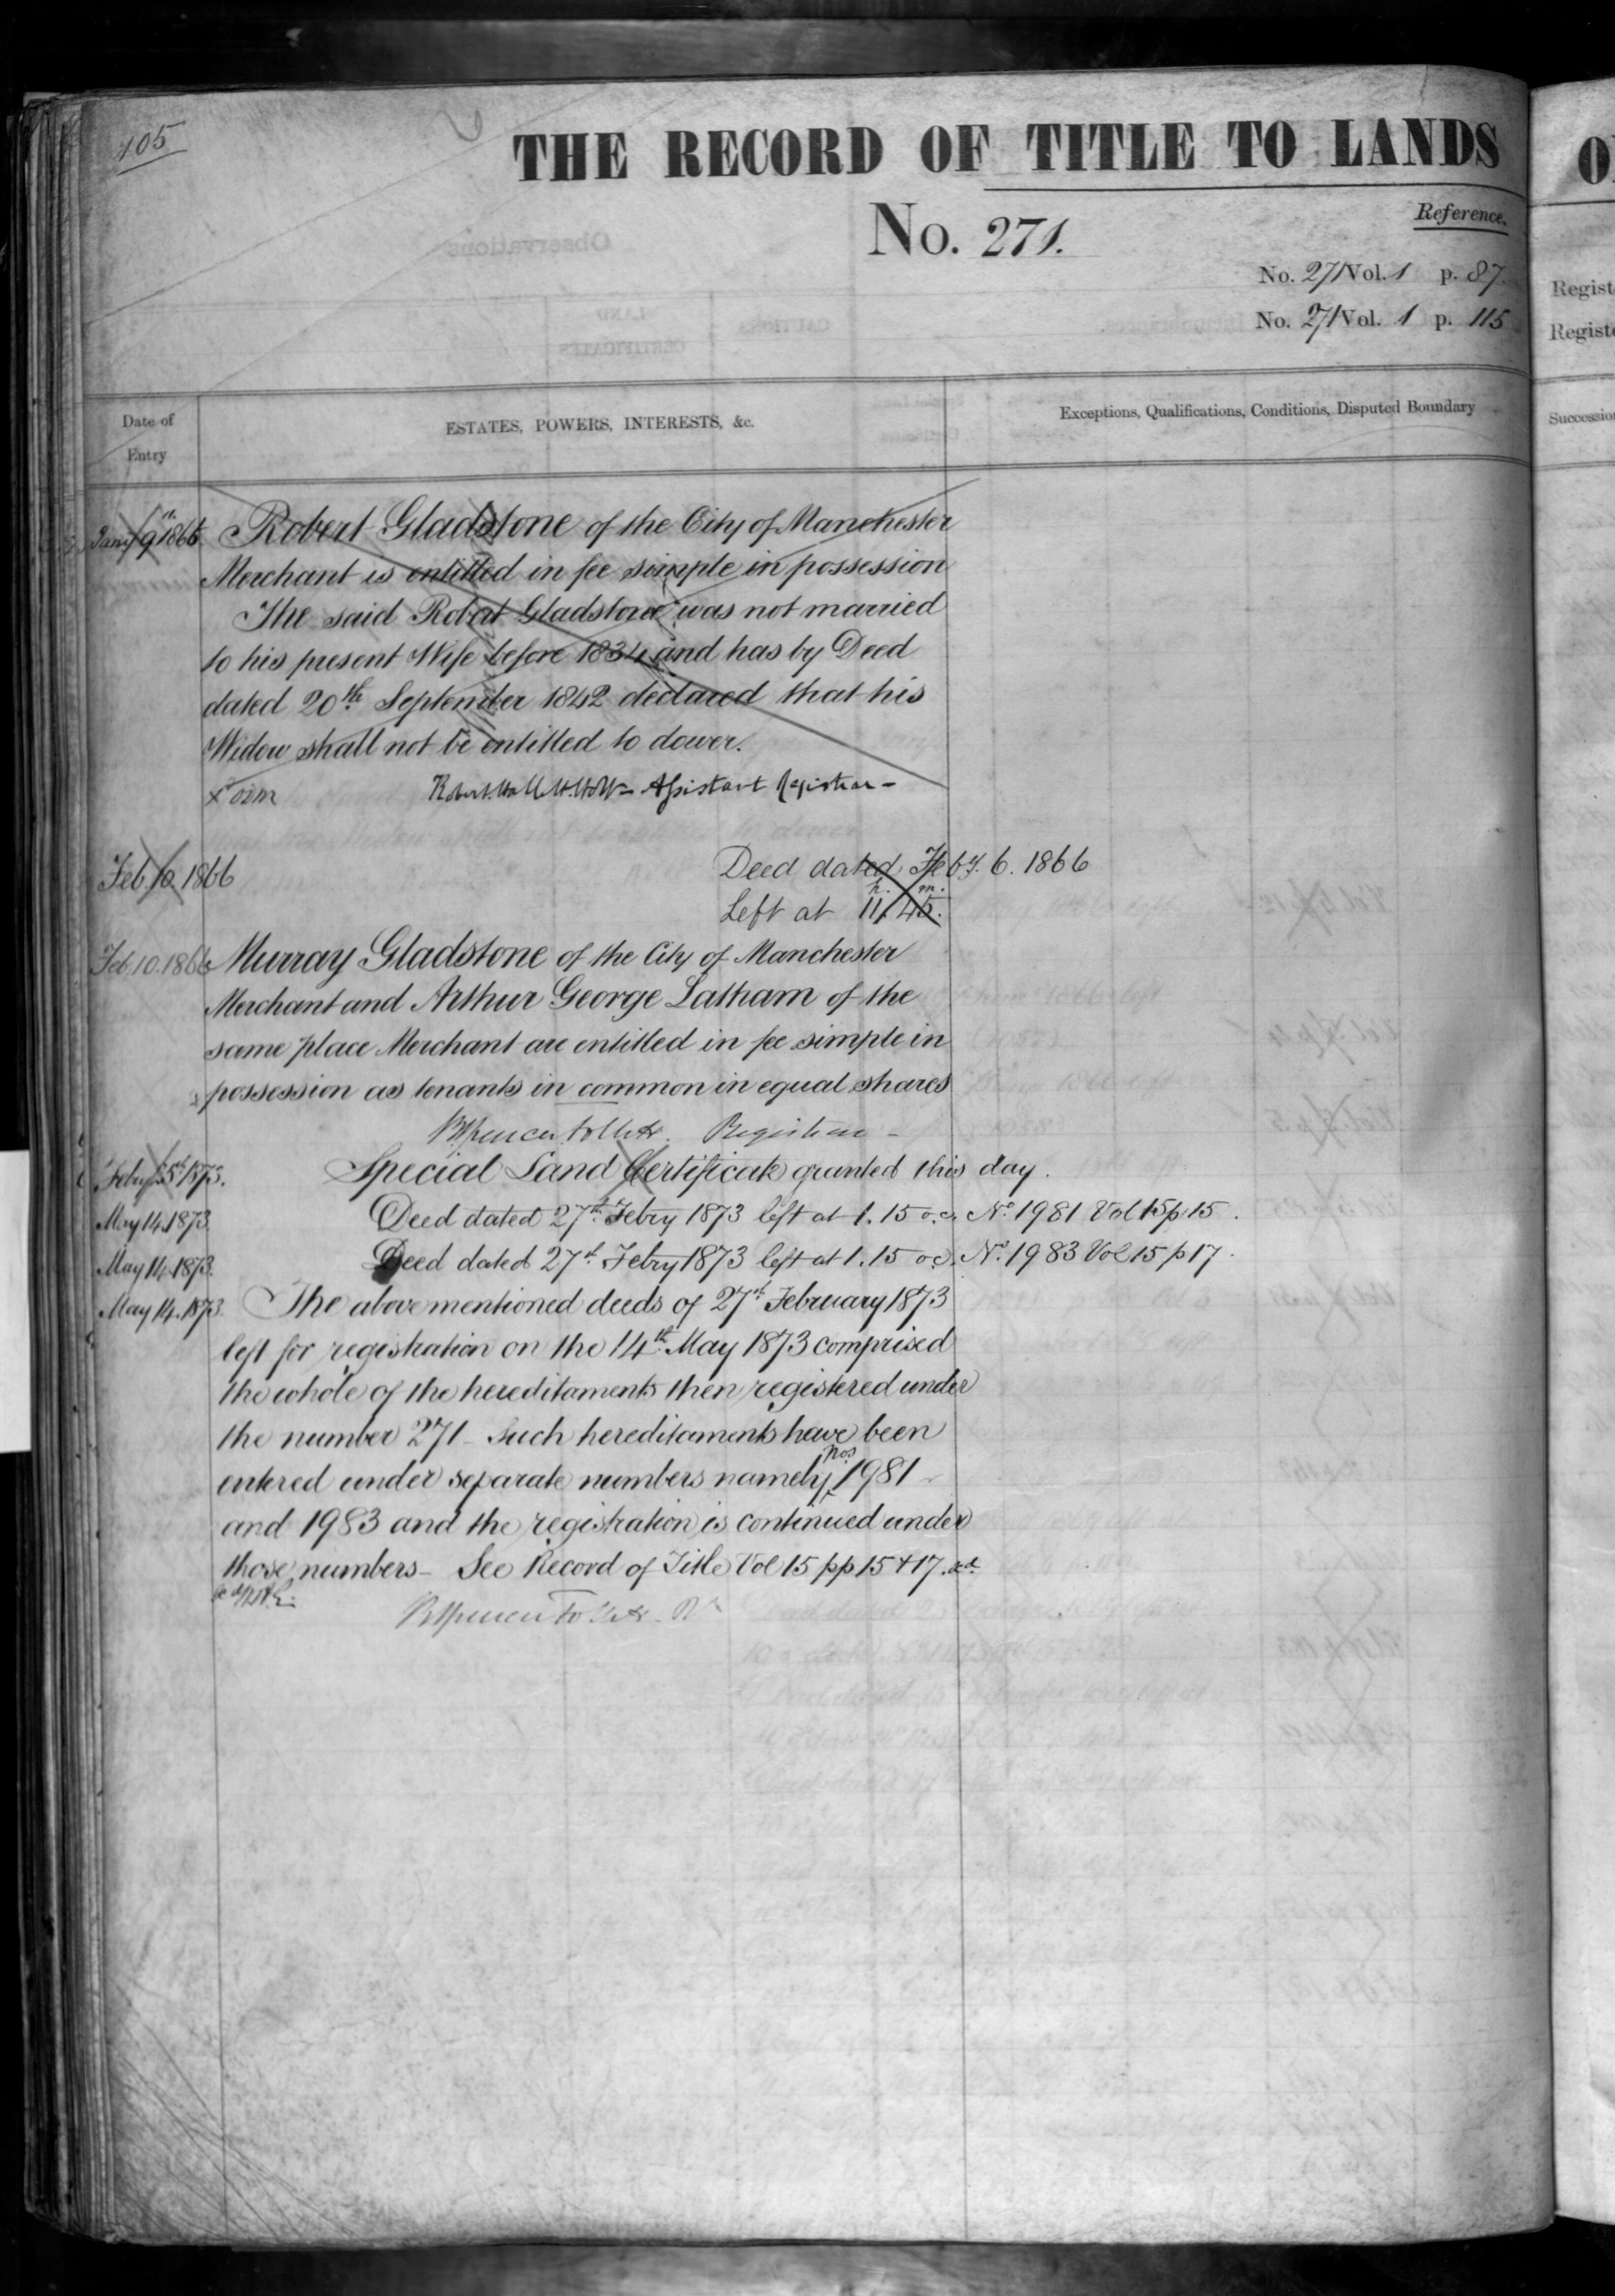 105
THE RECORD OF TITLE TO LANDS
No. 271.
Reference.
No. 271 Vol. 1 p. 87.
No. 271 Vol. 1 p. 115
Date of Entry
ESTATES, POWERS, INTERESTS, &c.
Exceptions, Qualifications, Conditions, Disputed Boundary
Robert Gladstone of the City of Manchester
Merchant is entitled in fee simple in possession
The said Robert Gladstone was not married
to his present Wife before 1834 and has by Deed
dated 20th September 1842 declared that his
Widow shall not be entitled to dower.
Assistant Registrar -
Feb 10 1866
Deed dated Feby. 6. 1866
Left at 11 h. 45 m.
Feb. 10. 1866 Murray Gladstone of the City of Manchester
Merchant and Arthur George Latham of the
same place Merchant are entitled in fee simple in
possession as tenants in common in equal shares
Registrar -
1873. Special Land Certificate granted this day.
May 14. 1873. Deed dated 27th Febry 1873 left at 1.15 o.c. No. 1981 Vol 15 p 15.
May 14. 1873. Deed dated 27th Febry 1873 left at 1.15 o.c. No. 1983 Vol 15 p 17.
May 14. 1873. The above mentioned deeds of 27th February 1873
left for registration on the 14th May 1873 comprised
the whole of the hereditaments then registered under
the number 271 - Such hereditaments have been
entered under separate numbers namely Nos 1981
and 1983 and the registration is continued under
those numbers - See Record of Title Vol 15 pp 15 + 17.
Regist
Regist
Succession